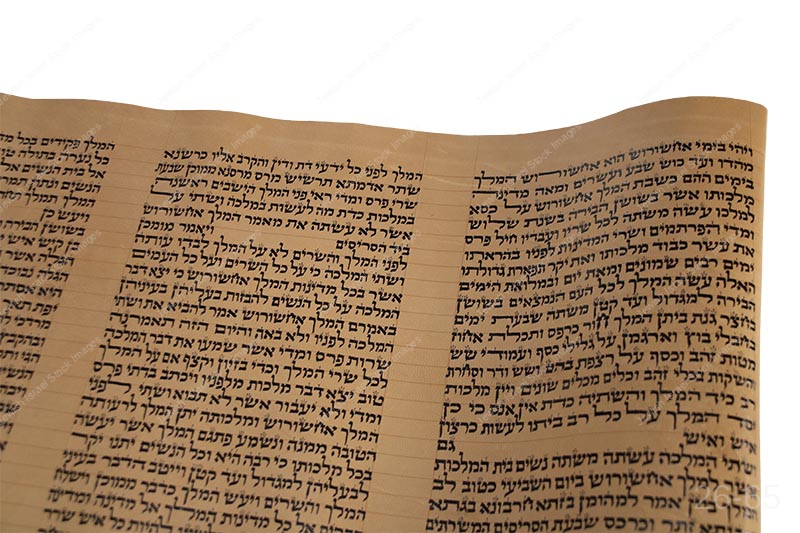 ויהי בימי אחשורוש הוא אחשורוש המלך
מהדו ועד כוש שבע ועשרים ומאה מדינה
בימים ההם כשבת המלך אחשורוש על כסא
מלכותו אשר בשושן הבירה בשנת שלוש
למלכו עשה משתה לכל שריו ועבדיו חיל פרס
ומדי הפרתמים ושרי המדינות לפניו בהראתו
את עשר כבוד מלכותו ואת יקר תפארת גדולתו
ימים רבים שמונים ומאת יום ובמלואת הימים
האלה עשה המלך לכל העם הנמצאים בשושן
הבירה למגדול ועד קטן משתה שבעת ימים
בחצר גנת ביתן המלך חור כרפס ותכלת אחוז
בחבלי בוץ וארגמן על גלילי כסף ועמודי שש
מטות זהב וכסף על רצפת בהט ושש ודר וסחרת
והשקות בכלי זהב וכלים מכלים שונים ויין מלכות
רב כיד המלך והשתיה כדת אין אנס כי כן
יסד המלך על כל רב ביתו לעשות כרצון
איש ואיש גם
ושתי המלכה עשתה משתה נשים בית המלכות
אשר למלך אחשורוש ביום השביעי כטוב לב
המלך ביין אמר למהומן בזתא חרבונא בגתא
ואבגתא זתר וכרכס שבעת הסריסים המשרתים
המלך לפני כל ידעי דת ודין והקרב אליו כרשנא
שתר אדמתא תרשיש מרס מרסנא ממוכן שבעת
שרי פרס ומדי ראי פני המלך הישבים ראשנה
במלכות כדת מה לעשות במלכה ושתי על
אשר לא עשתה את מאמר המלך אחשורוש
ביד הסריסים ויאמר מומכן
לפני המלך והשרים לא על המלך לבדו עותה
ושתי המלכה כי על כל השרים ועל כל העמים
אשר בכל מדינות המלך אחשורוש כי יצא דבר
המלכה על כל הנשים להבזות בעליהן בעיניהן
באמרם המלך אחשורוש אמר להביא את ושתי
המלכה לפניו ולא באה והיום הזה תאמרנה
שרות פרס ומדי אשר שמעו את דבר המלכה
לכל שרי המלך וכדי בזיון וקצף אם על המלך
טוב יצא דבר מלכות מלפניו ויכתב בדתי פרס
ומדי ולא יעבור אשר לא תבוא ושתי לפני
המלך אחשורוש ומלכותה יתן המלך לרעותה
הטובה ממנה ונשמע פתגם המלך אשר יעשה
בכל מלכותו כי רבה היא וכל הנשים יתנו יקר
לבעליהן למגדול ועד קטן וייטב הדבר בעיני
המלך והשרים ויעש המלך כדבר ממוכן וישלח
ספרים אל כל מדינות המלך אל מדינה ומדינה
להיות כל איש שרר
המלך פקידים בכל
כל נערה בתולה
אל בית הנשים אל
הנשים ונתון
המלך תמלך תחת
ויעש כן
בשושן הבירה
בן קיש איש
הגלה אשר
הגלה
היא אסתר
יפת תאר
מרדכי
ובהקבץ
26-65